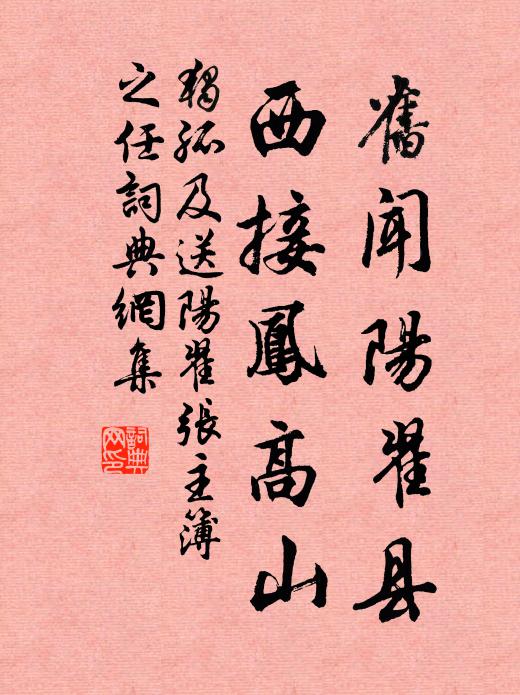 舊聞陽翟县
西接鳳高山
獨孤及送陽翟張主簿
之任詞典網集
詞典
网印